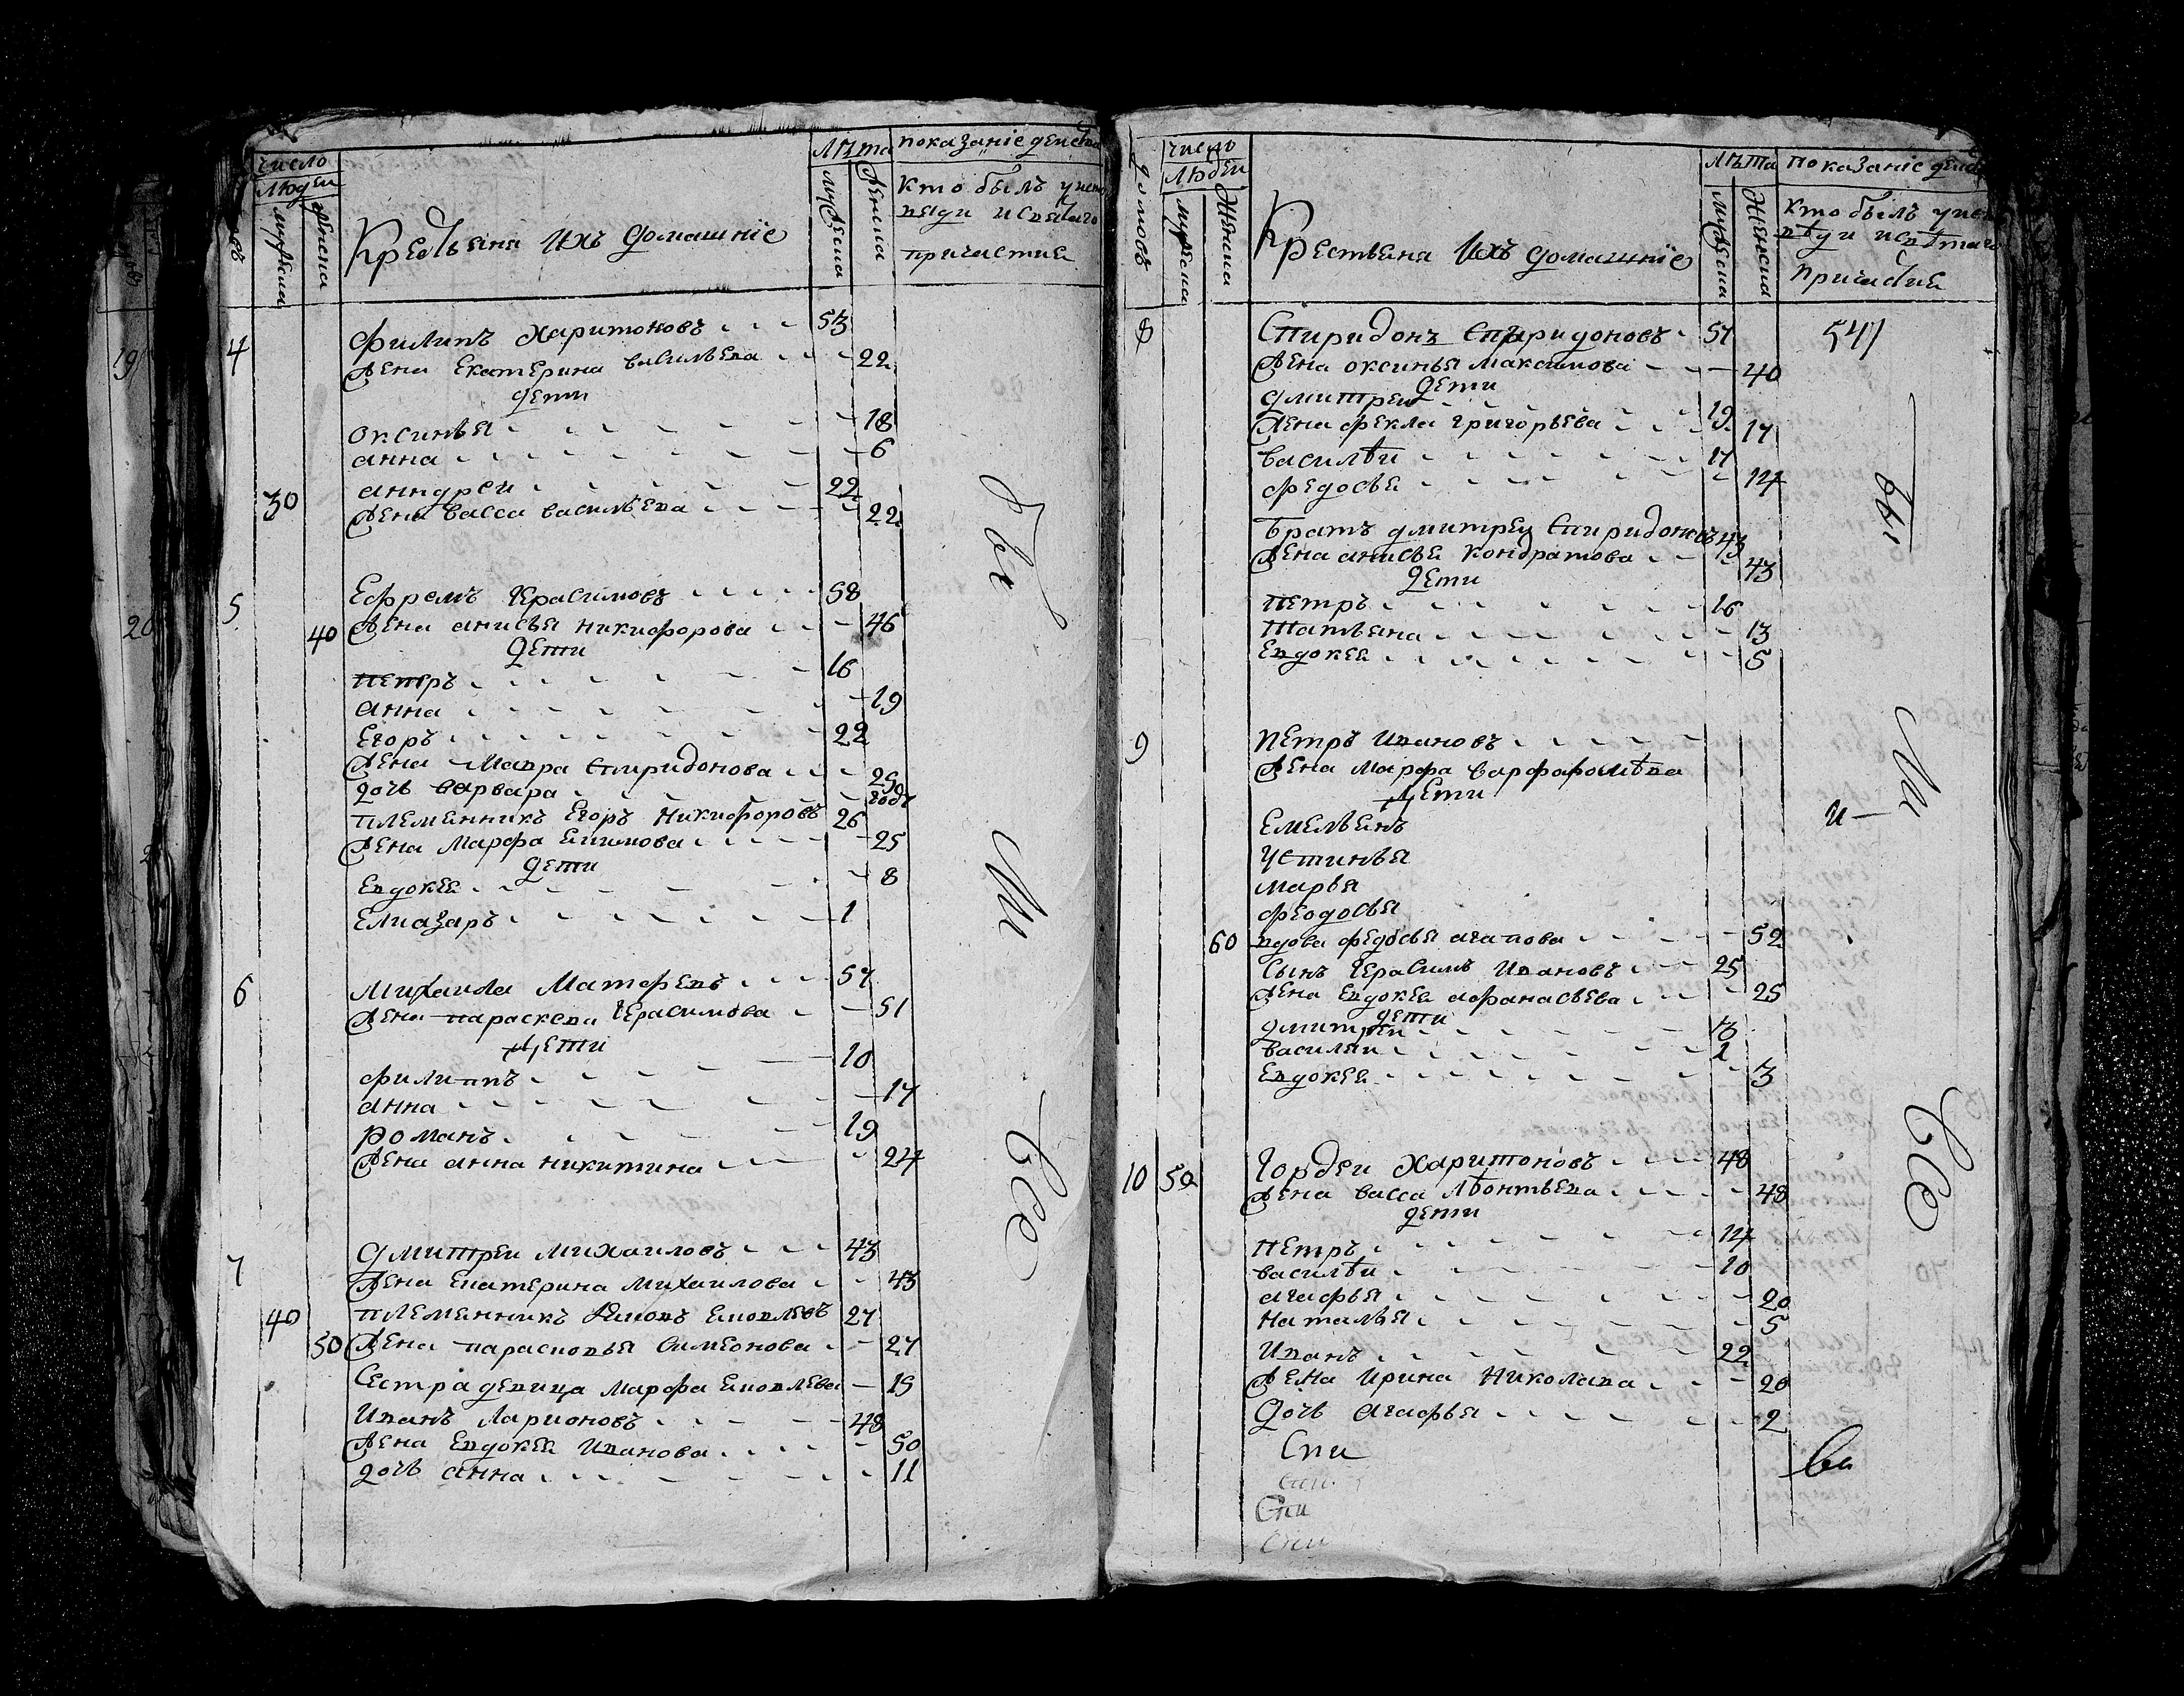 число
людей
мужеска
женска
Крестьяня ихъ домашнїе
лѣта
мужеска
женска
показанїе действа
кто былъ у испо
веди и святаго
причастия
4
Филипъ Харитоновъ 53
Жена Екатерина васильева 22
дети
оксинья 18
анна 6
30
анндреи 22
Жена васса васильева 22
5
Ефремъ Герасимовъ 58
40
Жена анисья никифорова 46
дети
Петръ 16
анна 19
Егоръ 22
Жена Мавра Спиридонова 25
дочь варвара годъ
племянникъ Егоръ Никифоровъ 26
Жена Марфа Екимова 25
дети
Евдокея 8
Елиазаръ 1
6
Михаила Матфеевъ 57
Жена параскева Герасимова 51
дети
филиппъ 10
анна 17
Романъ 19
Жена анна никитина 24
7
дмитреи михаиловъ 43
Жена екатерина михаилова 43
40
племянникъ Яковъ яковлевъ 27
50
Жена парасковья Симеонова 27
Сестра девица марфа яковлева 19
Иванъ Ларионовъ 48
Жена Евдокея Иванова 50
дочь анна 11
ли
все
домовъ
число
людеи
мужеска
женска
Крестьяня ихъ домашнїе
лѣта
мужеска
женска
показанїе действа
кто былъ у испо
вѣди и свѣтаго
причастия
8
Спиридонъ Спиридоновъ 57
547
Жена оксинья максимова 40
дети
дмитреи 19
Жена фекла григорьева 17
василѣи 17
федосья 14
бы
братъ дмитреи Спиридоновъ 43
Жена анисья кондратова 43
дети
Петръ 16
Татьяна 13
Евдокея 5
9
Петръ Ивановъ
Жена марфа варфаромѣва
дети
ли
Емельянъ
и
устинья
марья
феодосья
60
вдова федосья агапова 52
сынъ Герасимъ Ивановъ 25
Жена Евдокея афанасьева 25
дети
дмитреи 3
василеи 1
Евдокея 3
все
10
50
Гордеи Харитоновъ 48
Жена васса лѣонтьева 48
дети
Петръ 14
василѣи 10
агафья 20
наталья 5
Иванъ 22
Жена Ирина Николаева 20
дочь агафья 2
Спи
ва
Спи
Спи
Спи
19
20